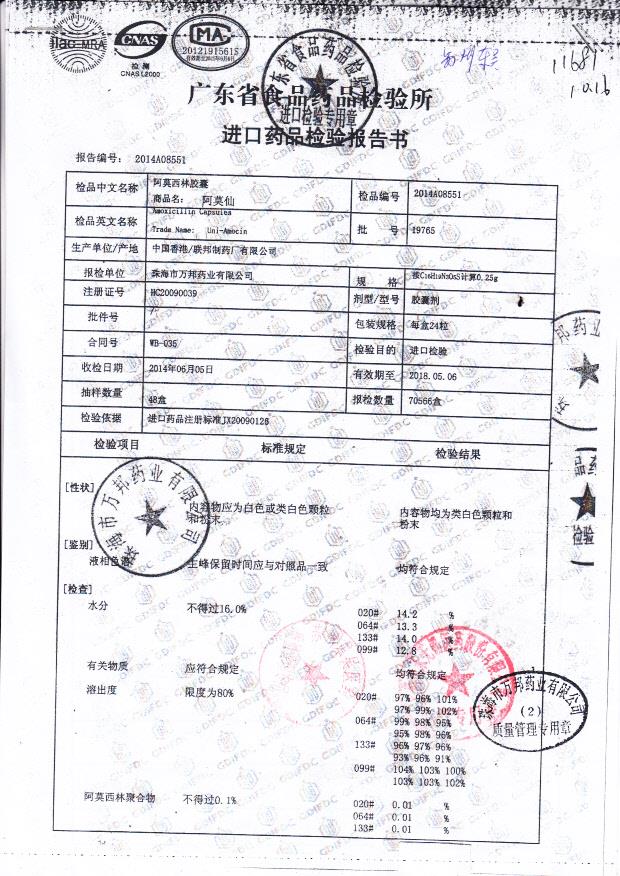 ilac-MRA
CNAS
检测
CNAS L2000
MA
2012191561S
广东省食品药品检验所
进口药品检验报告书
广东省食品药品检验所
进口检验专用章
11681
1016
报告编号: 2014A08551
检品中文名称 阿莫西林胶囊 商品名: 阿莫仙 检品编号 2014A08551
检品英文名称 Amoxicillin Capsules Trade Name: Uni-Amocin 批号 19765
生产单位/产地 中国香港/联邦制药厂有限公司
报检单位 珠海市万邦药业有限公司 规格 按C16H19N3O5S计算0.25g
注册证号 HC20090039 剂型/型号 胶囊剂
批件号 / 包装规格 每盒24粒
合同号 WB-035 检验目的 进口检验
收检日期 2014年06月05日 有效期至 2018.05.06
抽样数量 48盒 报检数量 70566盒
检验依据 进口药品注册标准JX20090128
检验项目 标准规定 检验结果
[性状]
内容物应为白色或类白色颗粒 内容物均为类白色颗粒和
和粉末 粉末
[鉴别]
液相色谱 主峰保留时间应与对照品一致 均符合规定
[检查]
水分 不得过16.0% 020# 14.2 %
064# 13.3 %
133# 14.0 %
099# 12.8 %
有关物质 应符合规定 均符合规定
溶出度 限度为80% 020# 97% 96% 101%
97% 99% 102%
064# 99% 98% 95%
95% 98% 96%
133# 96% 97% 96%
93% 96% 91%
099# 104% 103% 100%
103% 103% 102%
阿莫西林聚合物 不得过0.1% 020# 0.01 %
064# 0.01 %
133# 0.01 %
珠海市万邦药业有限公司
珠海市万邦药业有限公司
(2)
质量管理专用章
GDIFDC